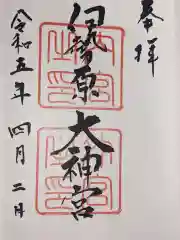 奉拝
伊勢原大神宮
令和五年四月二日